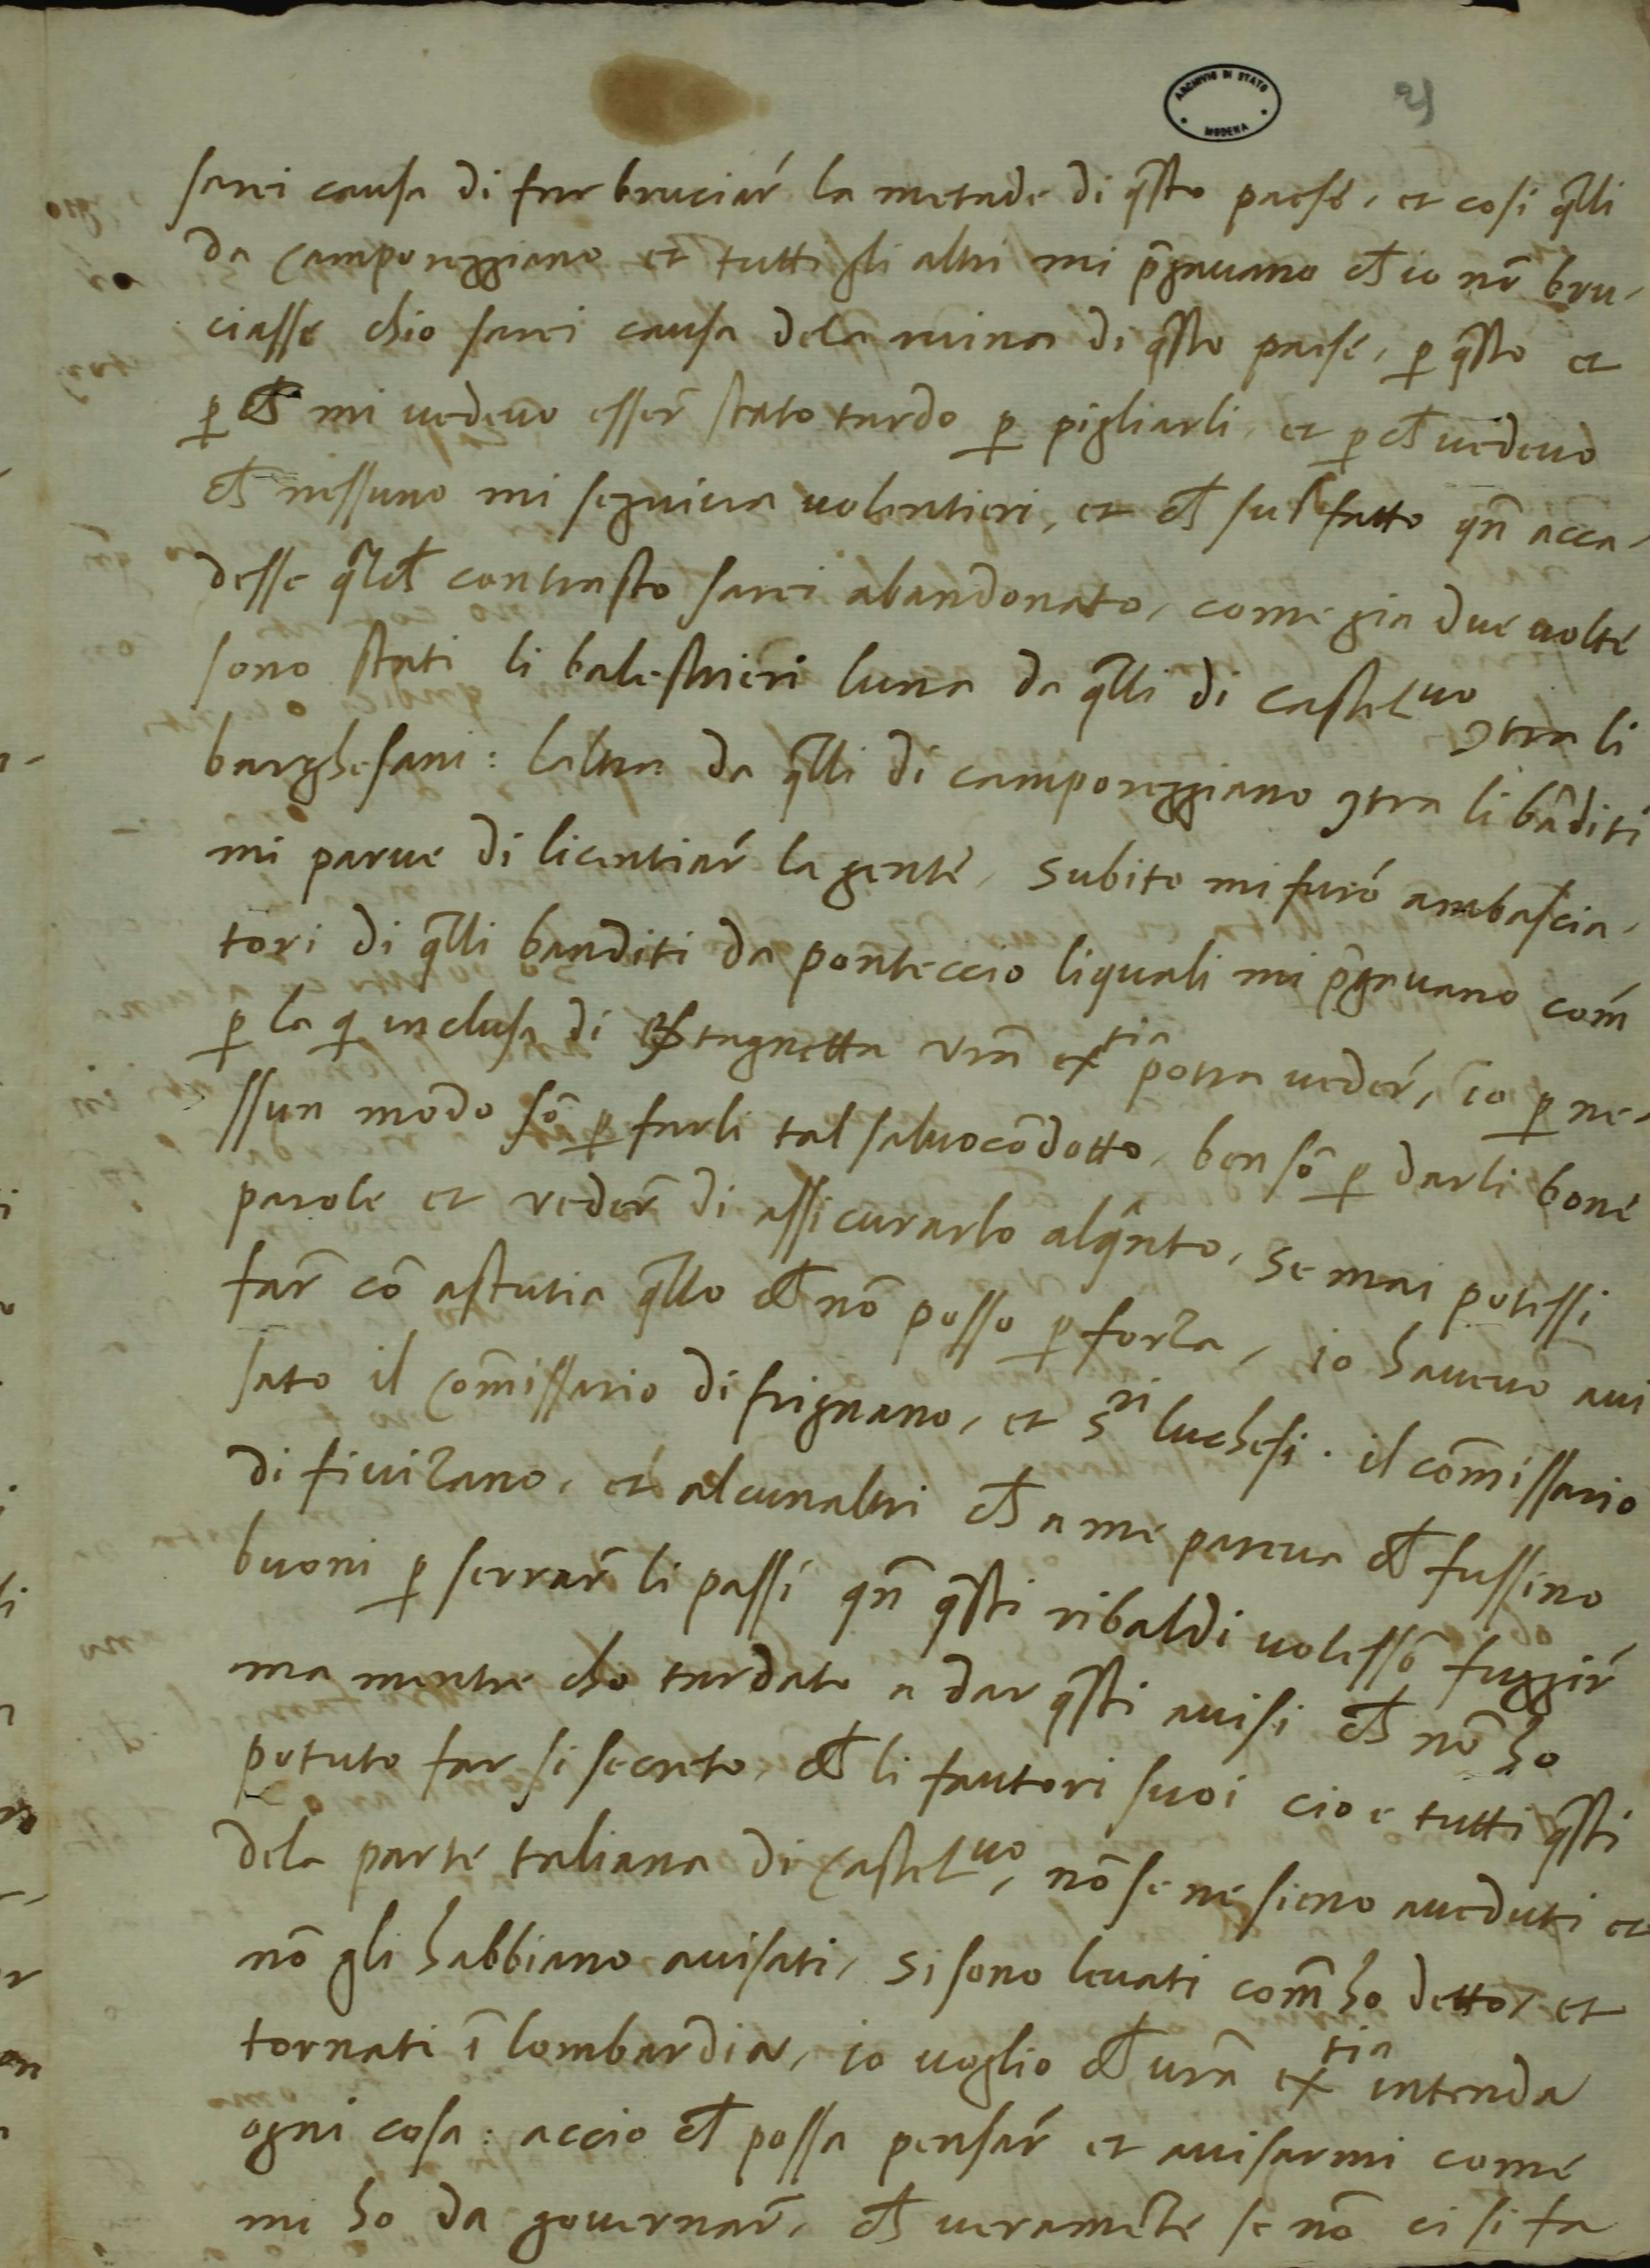 ARCHIVIO DI STATO
MODENA
sarei causa di far bruciar la metade di qsto paese, et cosi qlli
da camporeggiano et tutti gli altri mi pgauano ch io nõ bru,
ciasse chio sarei causa dela ruina di qsto paese, p qsto et
p ch mi uedeuo esser stato tardo p pigliarli, et p ch uedeuo
ch nessuno mi seguiua uolentieri, et ch sul fatto qñ acca,
desse qlch contrasto sarei abandonato, come gia due uolte
sono stati li balestrieri luna da qlli di castelⁿᵘᵒ ꝯtra li
barghesani: laltra da qlli di camporeggiano ꝯtra li bãditi
mi parue di licentiar la gente, subito mi furõ ambascia,
tori di qlli banditi da ponteccio liquali mi pgauano com
p la q inclusa di stagnetta vrã exᵗⁱᵃ potra ueder, io p ne,
ssun modo sõ p farli tal saluocõdotto, ben sõ p darli bone
parole et veder di assicurarlo alqnto, se mai potessi
far cõ astutia qllo ch nõ posso p forza, io haueuo aui
sato il comissario di frignano, et sʳⁱ luchesi. il comissario
di fiuizano, et alcunaltri ch a me pareua ch fussino
buoni p serrar li passi qñ qsti ribaldi uolessõ fuggir
ma mentre cho tardato a dar qsti auisi ch nõ ho
potuto far si secreto, ch li fautori suoi cioe tutti qsti
dela parte taliana di castelⁿᵘᵒ, nõ se ne sieno aueduti et
nõ gli habbiano auisati, si sono leuati com ho detto, et
tornati ĩ lombardia, io uoglio ch urã exᵗⁱᵃ intenda
ogni cosa: accio ch possa pensar et auisarmi come
mi ho da gouernar, ch ueramẽte se nõ ci si fa